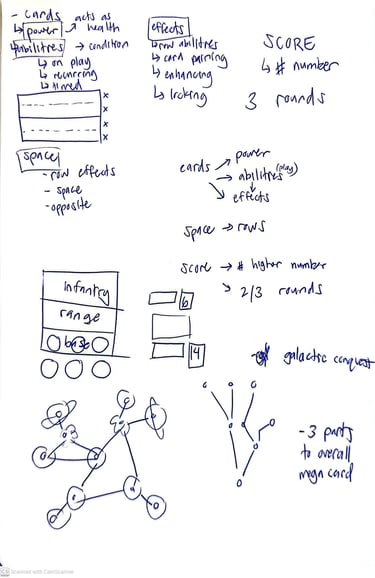 - cards acts as
↳ power → health
↳ abilitres → condition
↳ on play
↳ recurring
↳ timed
x
x
x
x
effects
↳ row abilitres
↳ card pairing
↳ enhancing
↳ locking
SCORE
↳ # number
3 rounds
space
- row effects
- space
- opposite
cards → power
→ abilitres (play)
↘ effects
space → rows
score → # higher number
↘ 2/3 rounds
infantry
range
base
6
14
- galactic conquest
- 3 parts
to overall
mega card
CS Scanned with CamScanner